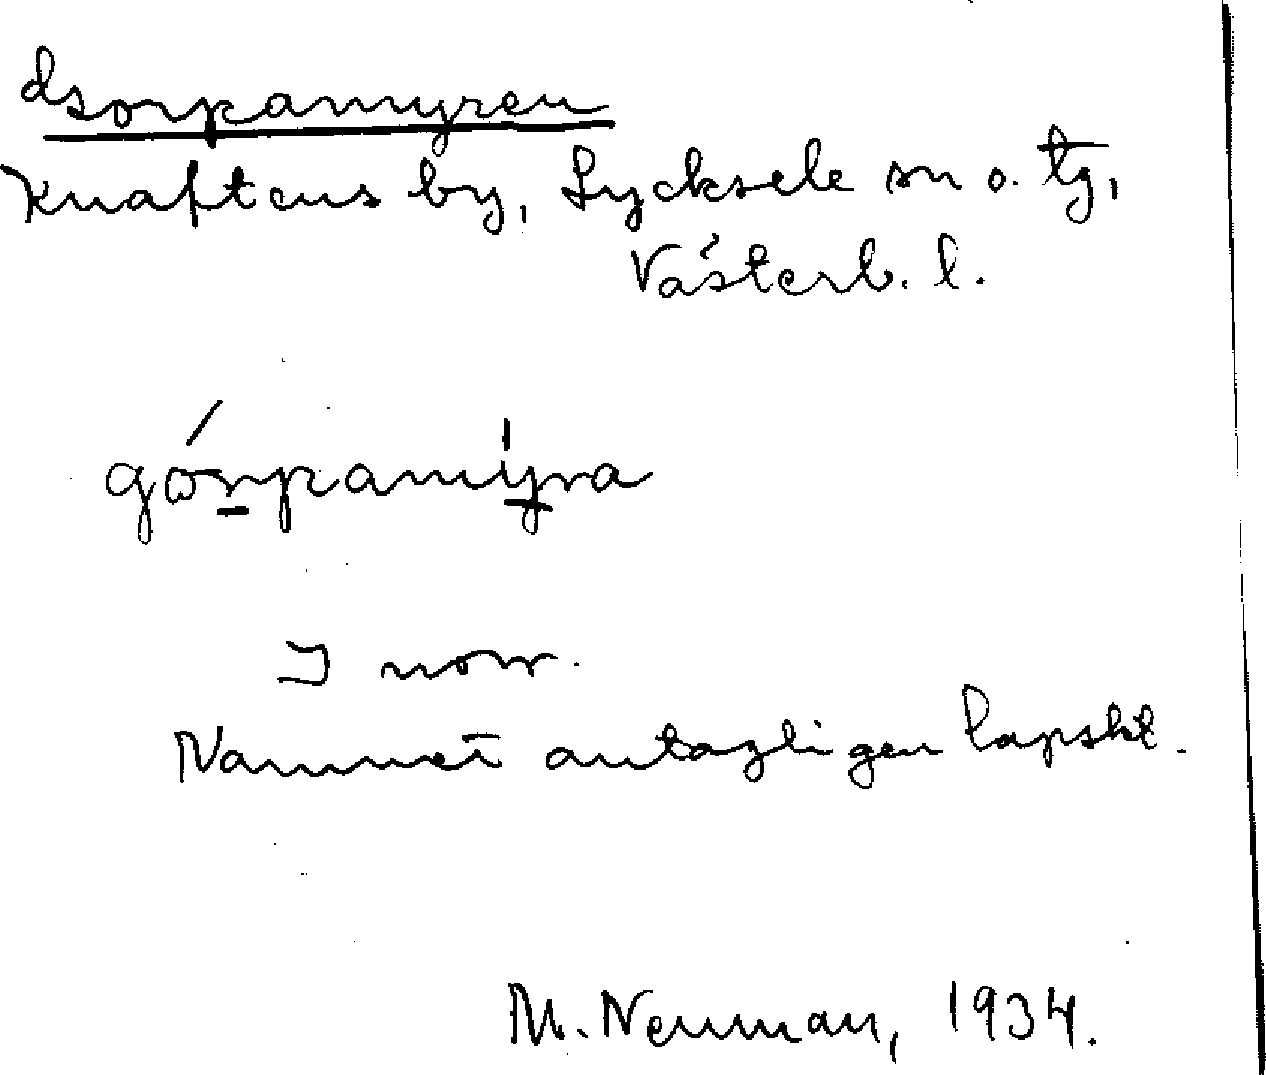 dsorpamyren
Knaftens by, Lycksele sn o. tg,
Västerb. l.
górpamýra
I norr.
Namnet antagligen lapskt.
M. Neuman, 1934.